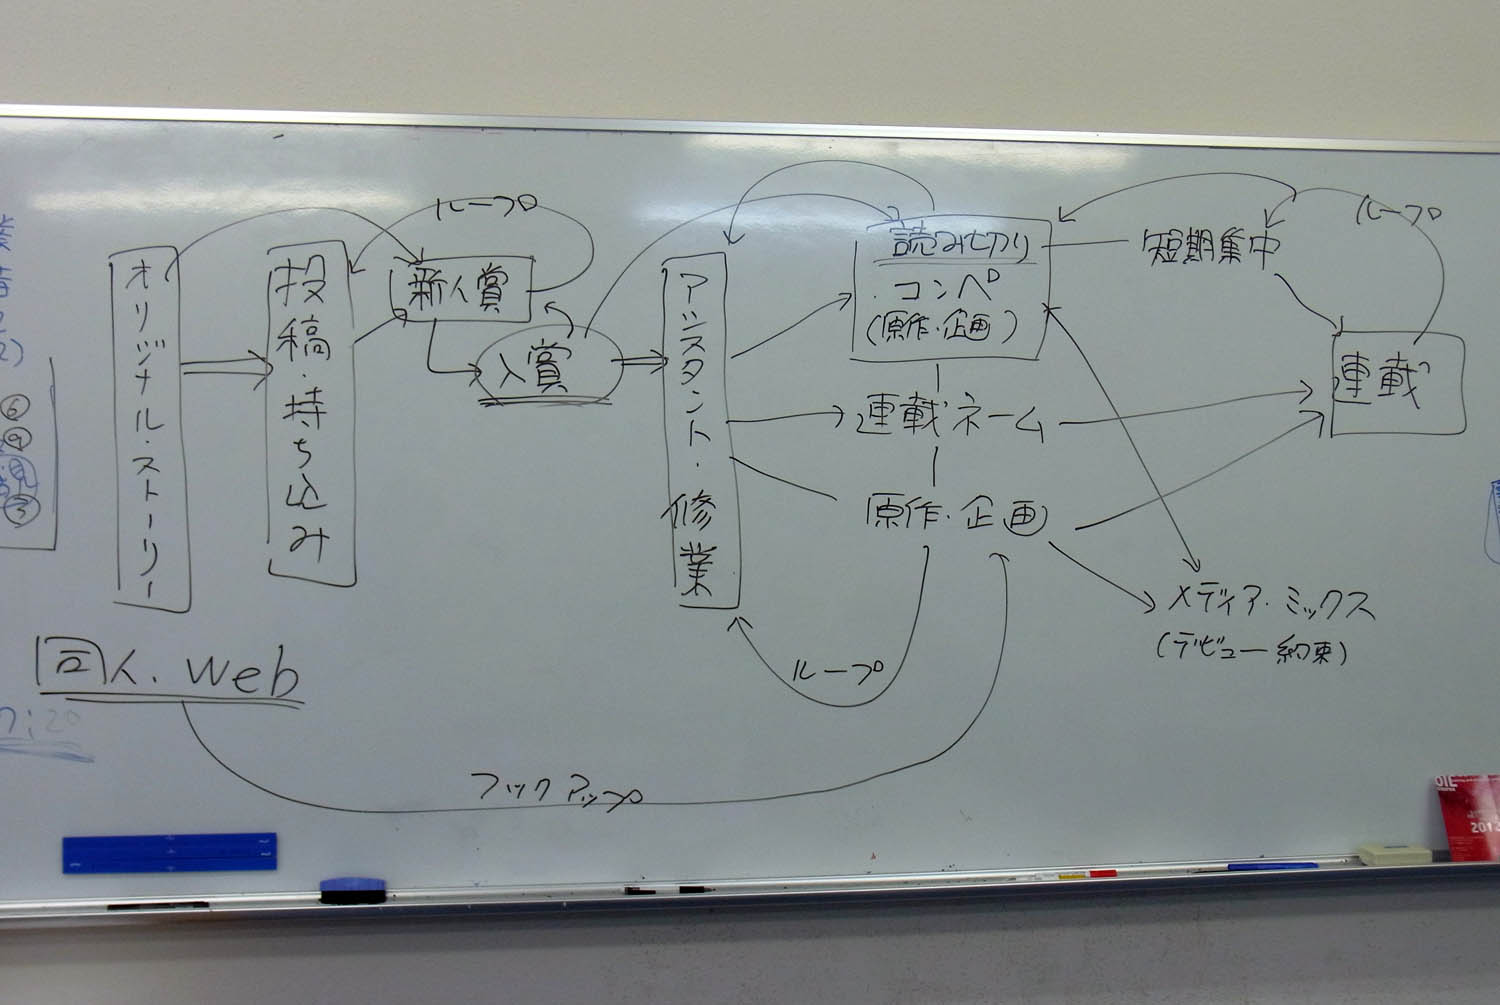 ループ
ループ
オリジナル・ストーリー
投稿・持ち込み
新人賞
入賞
アシスタント・修業
読み切り
・コンペ
(原作・企画)
短期集中
連載
連載ネーム
原作・企画
メディア・ミックス
(デビュー約束)
ループ
同人.Web
フックアップ
⑥
⑨
③
2012